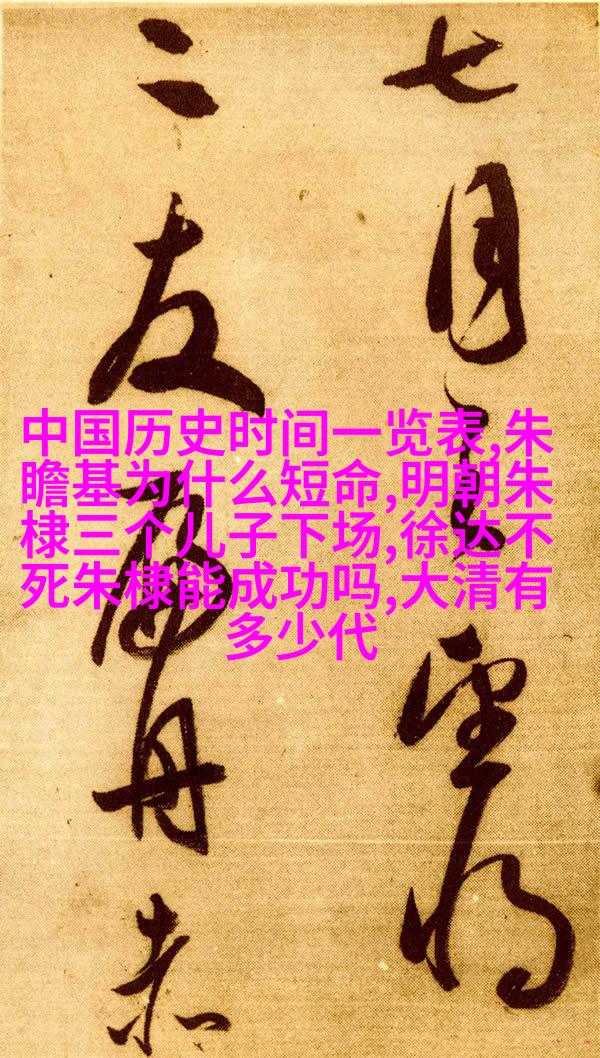 中国历史时间一览表,朱
瞻基为什么短命,明朝朱
棣三个儿子下场,徐达不
死朱棣能成功吗,大清有
多少代
七月望
二友丹赤